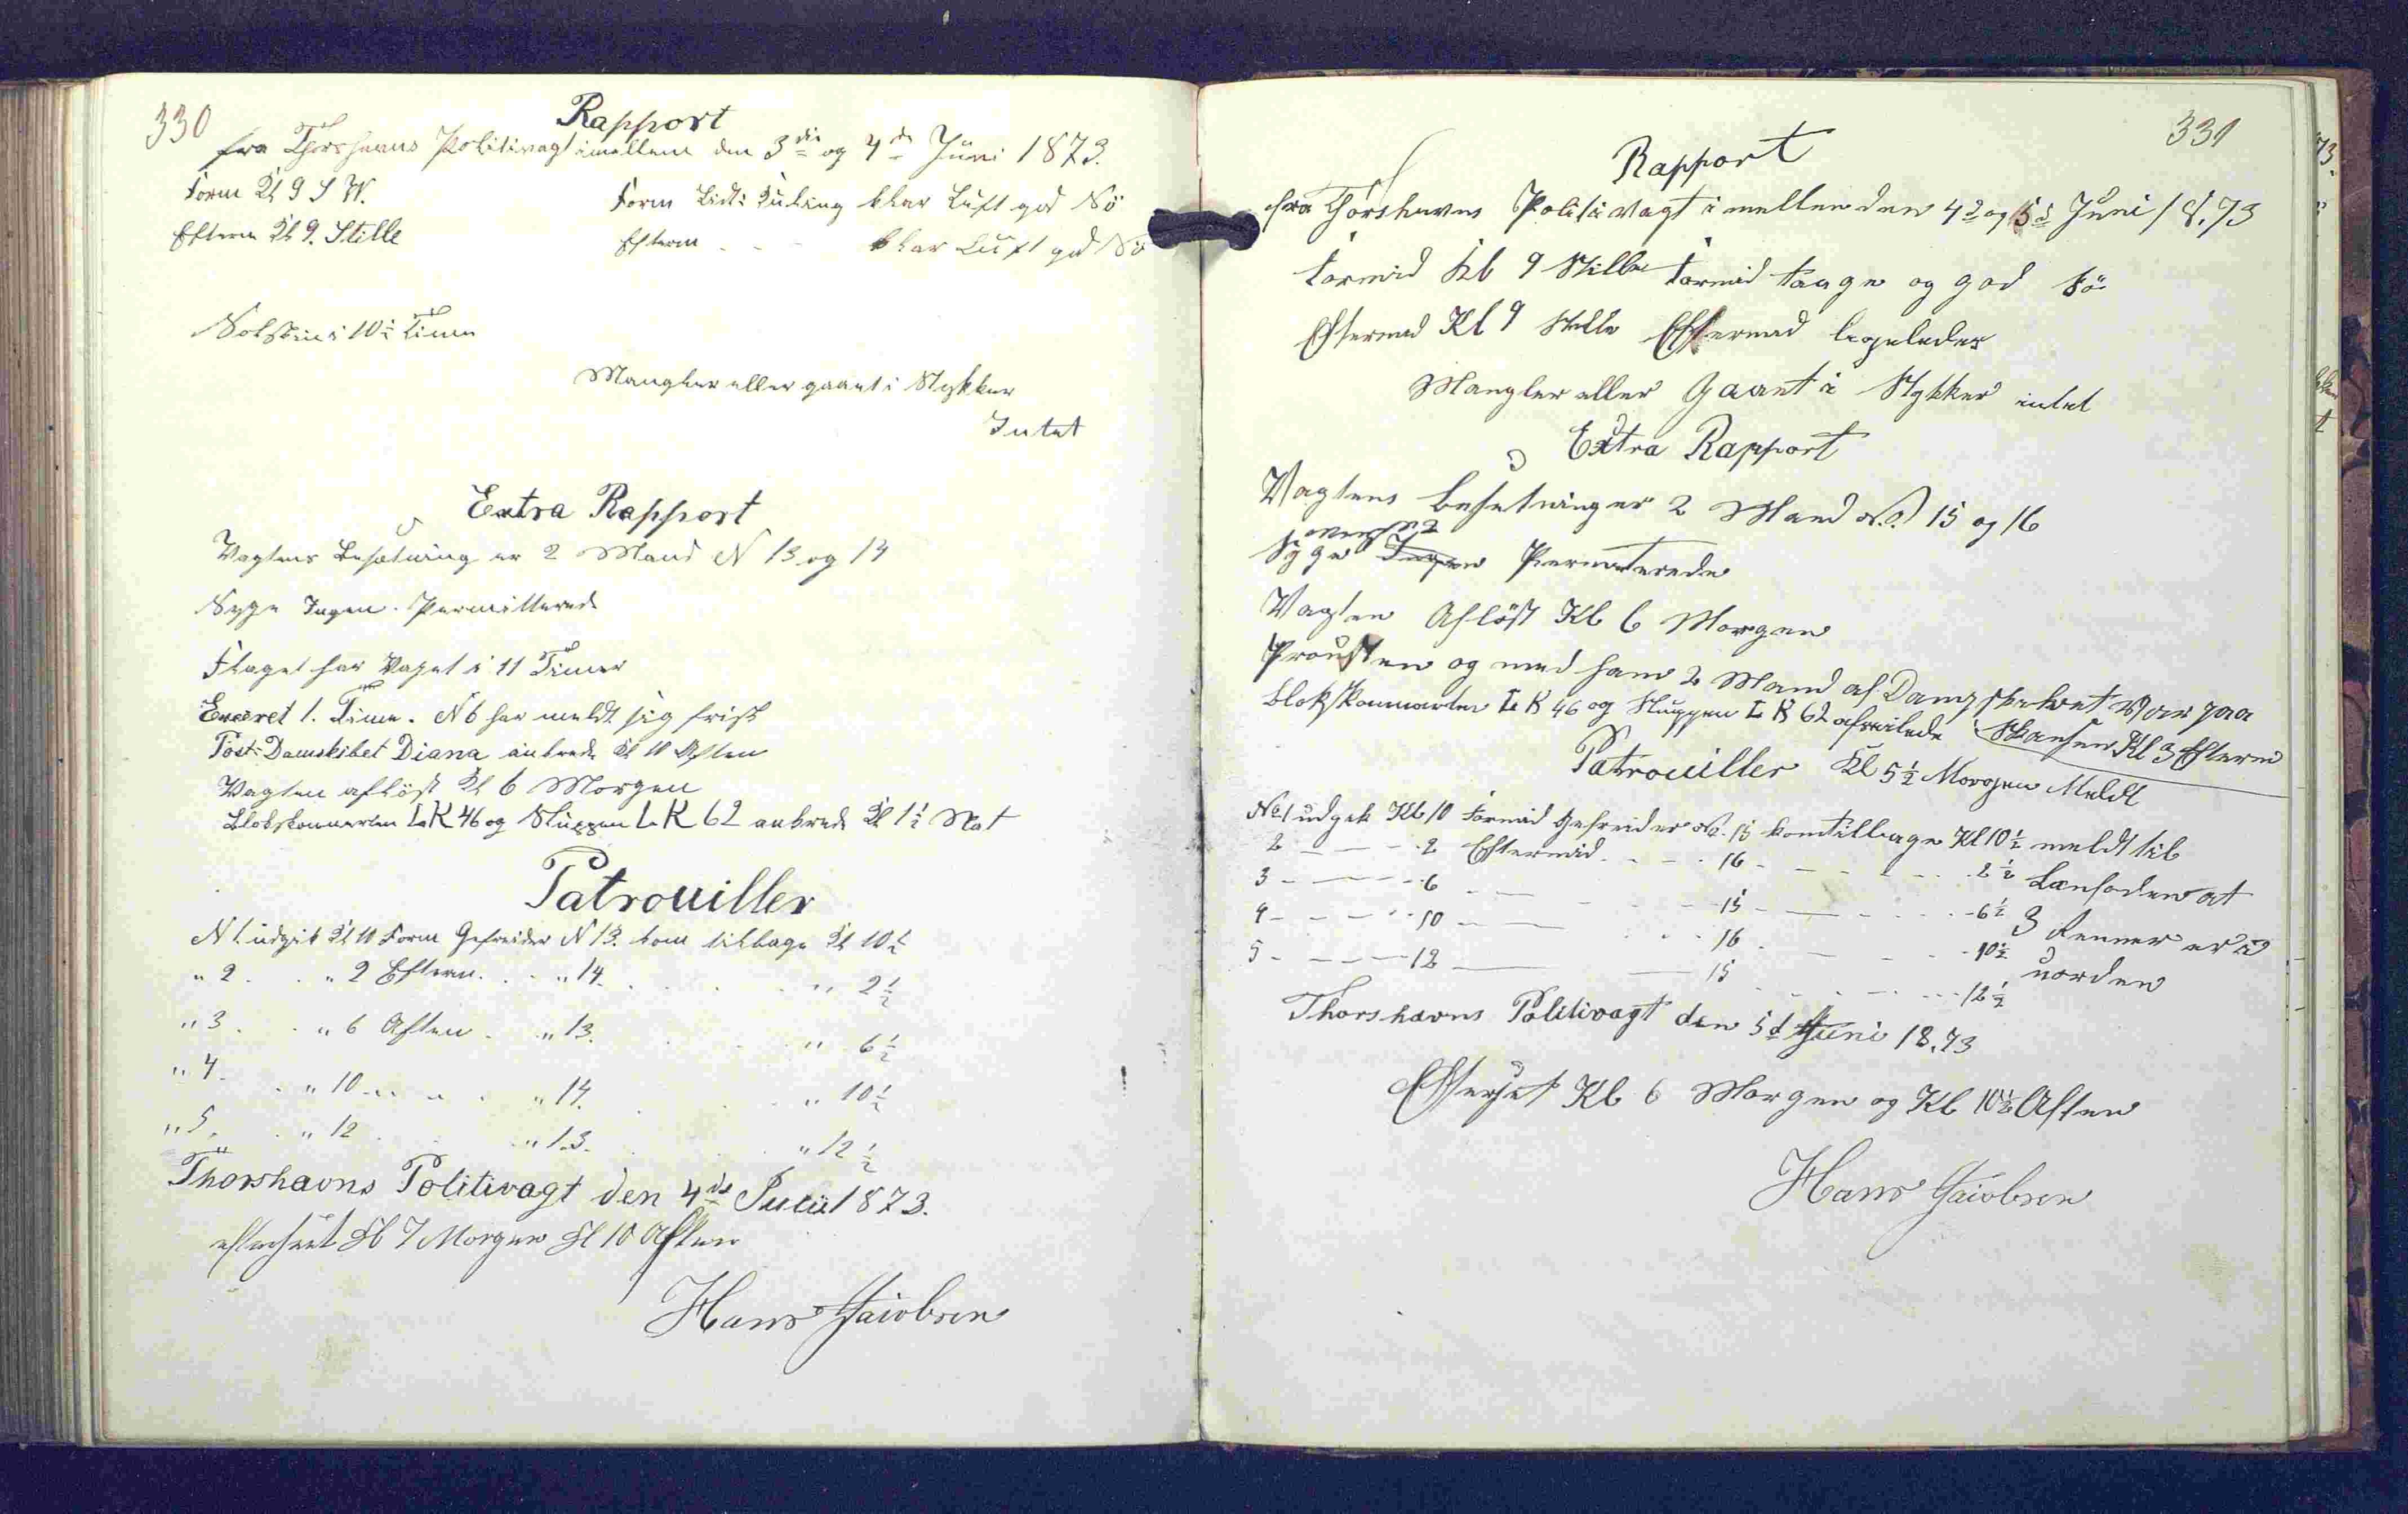 330
Rapport
fra Thorshavns Politivagt imellem den 3die og 4de Juni 1873.
Form Kl 9 S W. Form Lidt: Kuling klar Luft god Sö
Efterm Kl 9. Stille Efterm - - - klar Luft god Sö
Solskin i 10½ Time
Mangler eller gaaet i Stykker
Intet
Extra Rapport
Vagtens Besætning er 2 Mand N 13 og 14
Syge Ingen. Permitterede
Flaget har Vajet i 11 Timer
Exeret 1. Time. N 6 har meldt sig frisk
Post-Damskibet Diana ankrede Kl 10 Aften
Vagten aflöst Kl 6 Morgen
Blokskonnerten LK 46 og Sluppen LK 62 ankrede Kl 1½ Nat
Patrouiller
N 1. udgik Kl 10 Form Gefreider N 13. kom tilbage Kl 10½
" 2. . " 2 Efterm. . . " 14. . . . " 2½
" 3. . " 6 Aften . " 13. . . " 6½
" 4. . " 10 . . " 14. . . " 10½
" 5. . " 12 . . " 13. . . " 12½
Thorshavns Politivagt den 4de Juni 1873.
efterseet Kl 7 Morgen Kl 10 Aften
Hans Jacobsen
331
Rapport
fra Thorshavns Politivagt imellem den 4d og 5d Juni 18.73
Formid Kl 9 Stille Formid taage og god Sö
Eftermid Kl 9 Stille Eftermid ligeledes
Mangler eller Gaaet i Stykker intet
Extra Rapport
Vagtens Besetning er 2 Mand No. 15 og 16
Syge Ingen Permiterede
Vagten Aflöst Kl 6 Morgen
Prousten og med ham 2 Mand af Dampskibet Var paa
Skansen Kl 3 Efterm
Blokskonnarten LK 46 og Sluppen LK 62 afseilede
Kl 5½ Morgen
Patrouiller
Meldt
No 1 udgik Kl 10 Formid Gefreider No. 15 kom tilbage Kl 10½ meldt til
2 - - - 2 Eftermid - - - 16 - - - - 2½
3 - - - 6 - - - 15 - - - - 6½
4 - - - 10 - - - 16 - - - 10½
5 - - - 12 - - 15 - - - - 12½
at
3 Renner er i
uorden
Thorshavns Politivagt den 5d Juni 18.73
Efterset Kl 6 Morgen og Kl 10½ Aften
Hans Jacobsen